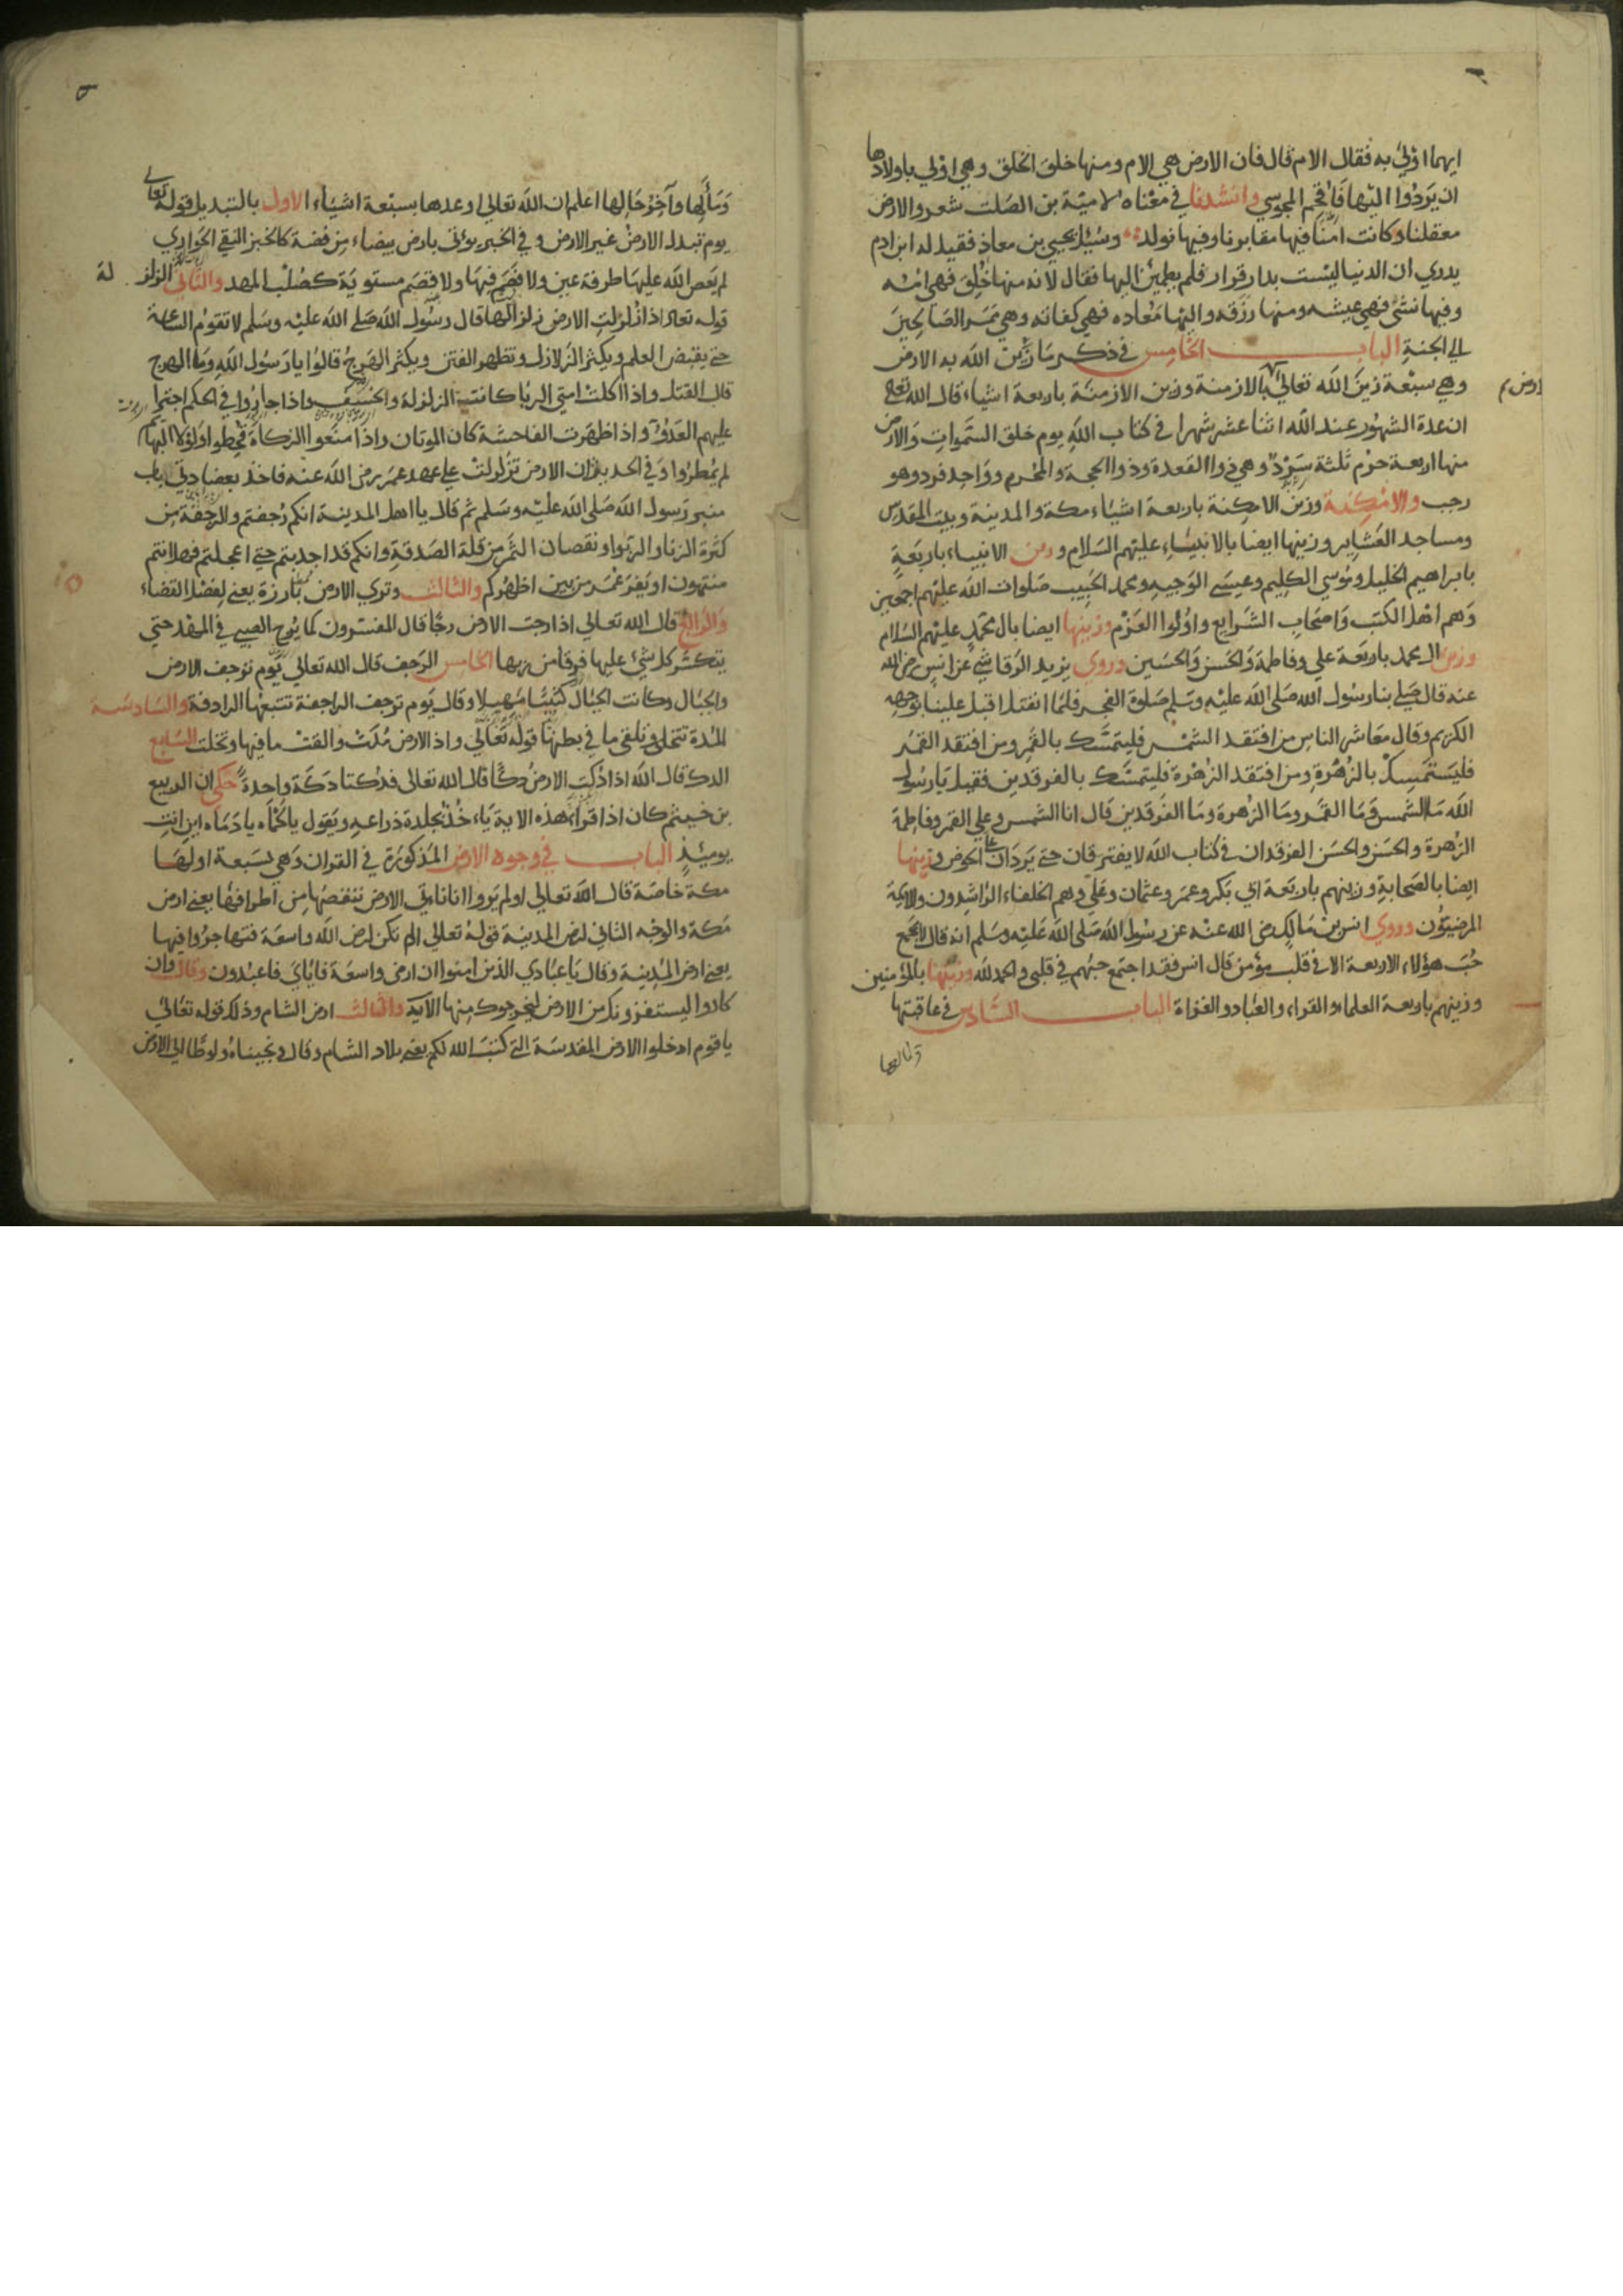 ايهما اولي به فقال الام قال فان الارض هي الام ومنها خلق الخلق وهي اولي باولادها
ان يردوا اليها فافحم المجوسي وانشدنا في معناه لامية بن الصلت شعر والارض
معقلنا وكانت امنا فيها مقابرنا وفيها نولد وسئل يحيي بن معاذ فقيل له ابن ادم
يدري ان الدنيا ليست بدار قرار فلم يطمئن اليها فقال لانه منها خلق فهي امه
وفيها نشئ فهي عيشه ومنها رزقه واليها معاده فهي كفاته وهي ممر الصالحين
الي الجنة الباب الخامس في ذكر ما زين الله به الارض
وهي سبعة زين الله تعالي بالازمنة وزين الازمنة باربعة اشياء قال الله تعالي
ان عدة الشهور عند الله اثنا عشر شهرا في كتاب الله يوم خلق السموات والارض
منها اربعة حرم ثلثة سرد وهي ذوا القعدة وذوا الحجة والمحرم وواحد فرد وهو
رجب والامكنة وزين الامكنة باربعة اشياء مكة والمدينة وبيت المقدس
ومساجد العشاير وزينها ايضا بالانبياء عليهم السلام وزين الانبياء باربعة
بابراهيم الخليل وموسي الكليم وعيسي الوجيه ومحمد الحبيب صلوات الله عليهم اجمعين
وهم اهل الكتب واصحاب الشرايع واولوا العزم وزينها ايضا بال محمد عليهم السلام
وزين ال محمد باربعة علي وفاطمة والحسن والحسين وروي يزيد الرقاشي عن انس رضي الله
عنه قال صلي بنا رسول الله صلى الله عليه وسلم صلوة الفجر فلما انفتل اقبل علينا بوجهه
الكريم وقال معاشر الناس من افتقد الشمس فليتمسك بالقمر ومن افتقد القمر
فليستمسك بالزهرة ومن افتقد الزهرة فليتمسك بالفرقدين فقيل يا رسول
الله ما الشمس وما القمر وما الزهرة وما الفرقدين قال انا الشمس وعلي القمر وفاطمة
الزهرة والحسن والحسن الفرقدان في كتاب الله لا يفترقان حتي يردان علي الحوض وزينها
ايضا بالصحابة وزينهم باربعة ابي بكر وعمر وعثمان وعلي وهم الخلفاء الراشدون والايمة
المرضيون وروي انس بن مالك رضي الله عنه عن رسول الله صلى الله عليه وسلم انه قال لا يجمع
حب هؤلاء الاربعة الا في قلب مؤمن قال انس فقد اجتمع حبهم في قلبي والحمد لله وزينها بالمؤمنين
وزينهم باربعة العلماء والقراء والعباد والغزاة الباب السادس في عاقبتها
ومالها
ومألها وآخر حالها اعلم ان الله تعالي اوعدها بسبعة اشياء الاول بالتبديل قوله تعالي
يوم تبدل الارض غير الارض وفي الخبر يؤتي بارض بيضاء من فضة كالخبز النقي الحواري
لم يعص الله عليها طرفة عين ولا قصم فيها ولا فصم مستوية كصلب المهد والثاني الزلزلة
قوله تعالي اذا زلزلت الارض زلزالها قال رسول الله صلى الله عليه وسلم لا تقوم الساعة
حتي يقبض العلم ويكثر الزلازل وتظهر الفتن ويكثر الهرج قالوا يا رسول الله وما الهرج
قال القتل واذا اكلت امتي الربا كانت الزلزلة والخسف واذا جاروا في الحكم اجترا
عليهم العدو واذا ظهرت الفاحشة كان الموتان واذا منعوا الزكاة قحطوا ولولا البهايم
لم يمطروا وفي الحديث ان الارض تزلزلت علي عهد عمر رضي الله عنه فاخذ بعضادتي باب
منبر رسول الله صلى الله عليه وسلم ثم قال يا اهل المدينة انكم رجفتم والرجفة من
كثرة الزنا والربوا ونقصان الثمر من قلة الصدقة وانكم قد اجدبتم حتي اعجلتم فهل انتم
منتهون او يفر عمر من بين اظهركم والثالث وتري الارض بارزة يعني لفصل القضاء
والرابع قال الله تعالي اذا رجت الارض رجا قال المفسرون كما يرج الصبي في المهد حتي
يتكسر كل شئ عليها فرقا من ربها الخامس الرجف قال الله تعالي يوم ترجف الارض
والجبال وكانت الجبال كثيبا مهيلا وقال يوم ترجف الراجفة تتبعها الرادفة والسادسة
المدة تتخلي وتلقي ما في بطنها قوله تعالي واذا الارض مدت والقت ما فيها وتخلت السابع
الدك قال الله اذا دكت الارض دكا قال الله تعالى فدكتا دكة واحدة حكي ان الربيع
بن خيثم كان اذا قرا هذه الاية ياء خذ بجلدة ذراعيه ويقول يا لحماه يا دماه اين انت
يوميذ الباب في وجوه الارض المذكورة في القران وهي سبعة اولها
مكة خاصة قال الله تعالي اولم يروا انا ناتي الارض ننقصها من اطرافها يعني ارض
مكة والوجه الثاني ارض المدينة قوله تعالي الم تكن ارض الله واسعة فتهاجروا فيها
يعني ارض المدينة وقال يا عبادي الذين امنوا ان ارضي واسعة فاياي فاعبدون وقال وان
كادوا ليستفزونك من الارض ليخرجوك منها الاية والثالث ارض الشام وذلك قوله تعالي
يا قوم ادخلوا الارض المقدسة التي كتب الله لكم يعني بلاد الشام وقال ونجيناه ولوطا الي الارض